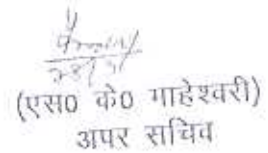 (एस0 के0 गाहेश्वरी)
अपर सचिव